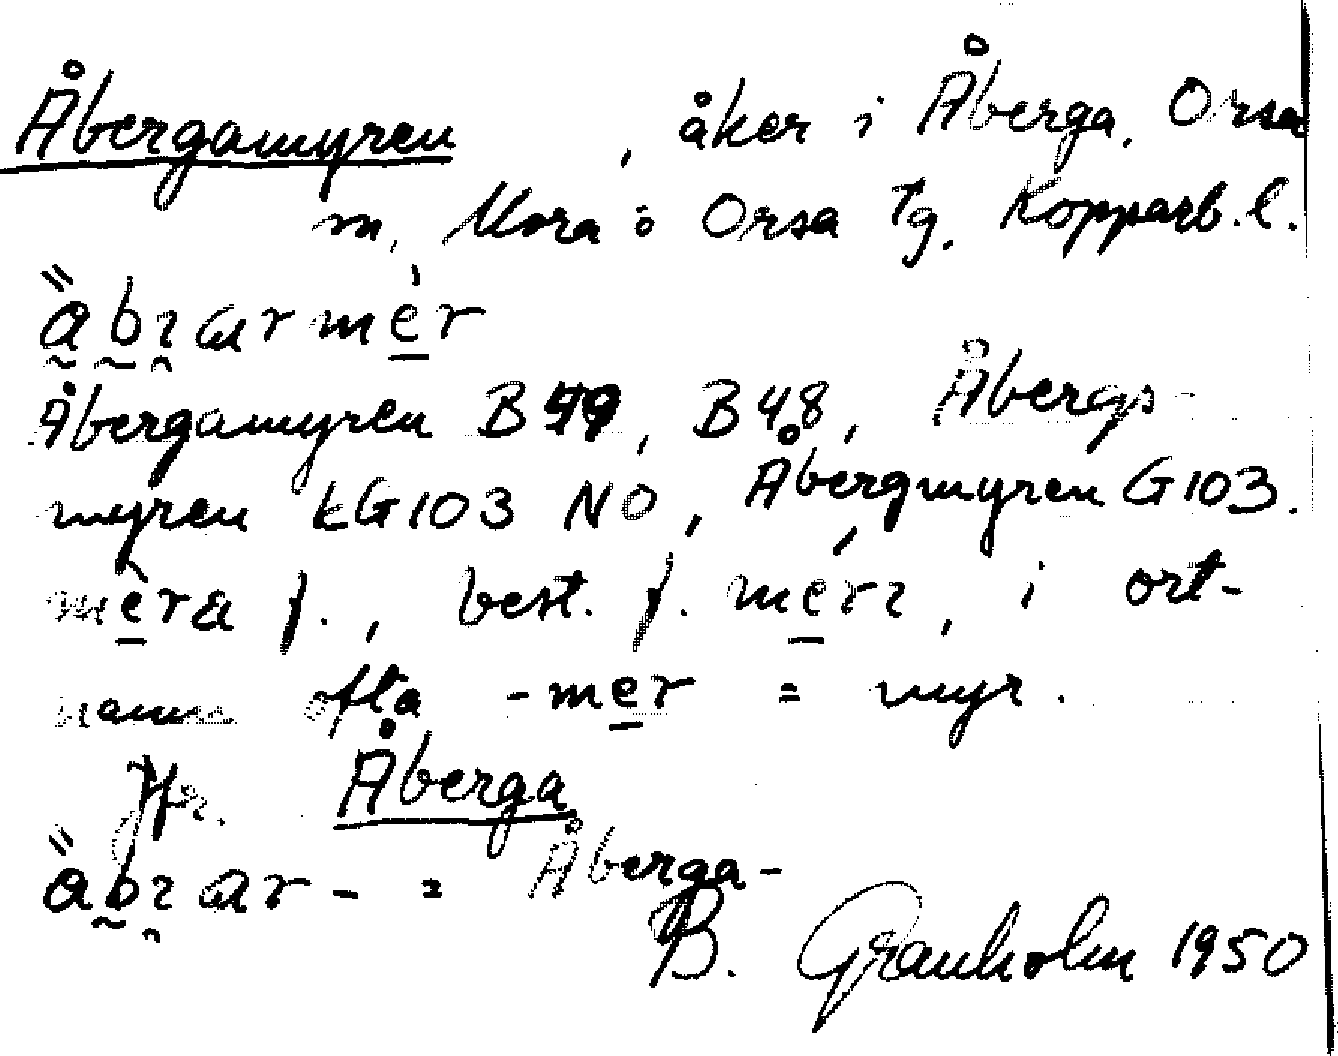 Åbergamyren , åker i Åberga, Orsa
m, Mora o Orsa tg. Kopparb.l.
Åbergamyren B B48, Åbergs-
myren kG103 NO, Åbergmyren G103.
mera f., best. f. merı, i ort-
namn ofta -mer = myr.
Jfr. Åberga
= Åberga-
B. Granholm 1950